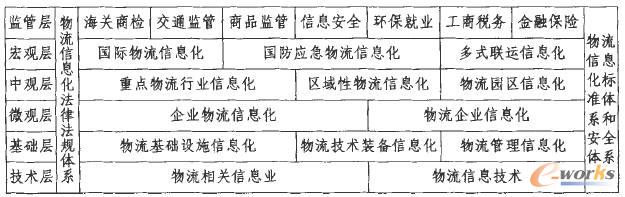 监管层 海关商检 交通监管 商品监管 信息安全 环保就业 工商税务 金融保险
宏观层 国际物流信息化 国防应急物流信息化 多式联运信息化
中观层 重点物流行业信息化 区域性物流信息化 物流园区信息化
微观层 企业物流信息化 物流企业信息化
基础层 物流基础设施信息化 物流技术装备信息化 物流管理信息化
技术层 物流相关信息业 物流信息技术
物流信息化法律法规体系
物流信息化标准体系和安全体系
e-works